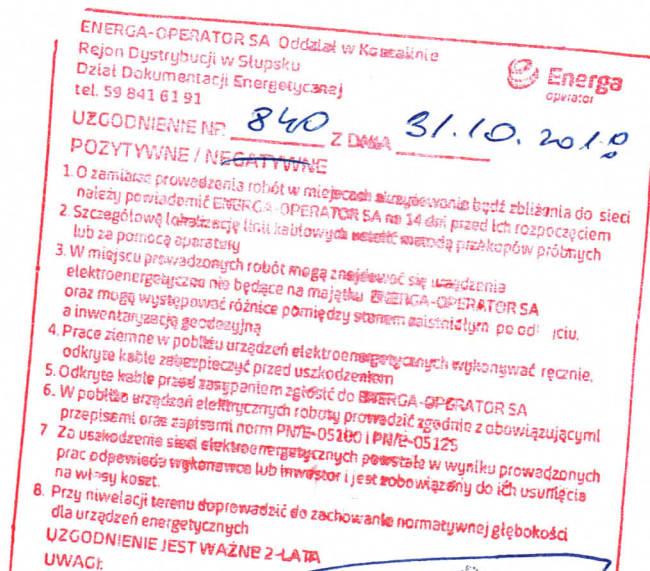 ENERGA-OPERATOR SA Oddział w Koszalinie
Rejon Dystrybucji w Słupsku
Dział Dokumentacji Energetycznej
tel. 59 841 61 91
Energa
operator
UZGODNIENIE NR 840 Z DNIA 31.10.2018
POZYTYWNE / NEGATYWNE
1. O zamiarze prowadzenia robót w miejscach skrzyżowania bądź zbliżenia do sieci
należy powiadomić ENERGA-OPERATOR SA na 14 dni przed ich rozpoczęciem
2. Szczegółową lokalizację linii kablowych ustalić metodą przekopów próbnych
lub za pomocą aparatury
3. W miejscu prowadzonych robót mogą znajdować się urządzenia
elektroenergetyczne nie będące na majątku ENERGA-OPERATOR SA
oraz mogą występować różnice pomiędzy stanem zaistniałym po od iciu,
a inwentaryzacją geodezyjną
4. Prace ziemne w pobliżu urządzeń elektroenergetycznych wykonywać ręcznie,
odkryte kable zabezpieczyć przed uszkodzeniem
5. Odkryte kable przed zasypaniem zgłosić do ENERGA-OPERATOR SA
6. W pobliżu urządzeń elektrycznych roboty prowadzić zgodnie z obowiązującymi
przepisami oraz zapisami norm PN/E-05100 i PN/E-05125
7 Za uszkodzenie sieci elektroenergetycznych powstałe w wyniku prowadzonych
prac odpowiada wykonawca lub inwestor i jest zobowiązany do ich usunięcia
na własny koszt.
8. Przy niwelacji terenu doprowadzić do zachowanie normatywnej głębokości
dla urządzeń energetycznych
UZGODNIENIE JEST WAŻNE 2-LATA
UWAGI: